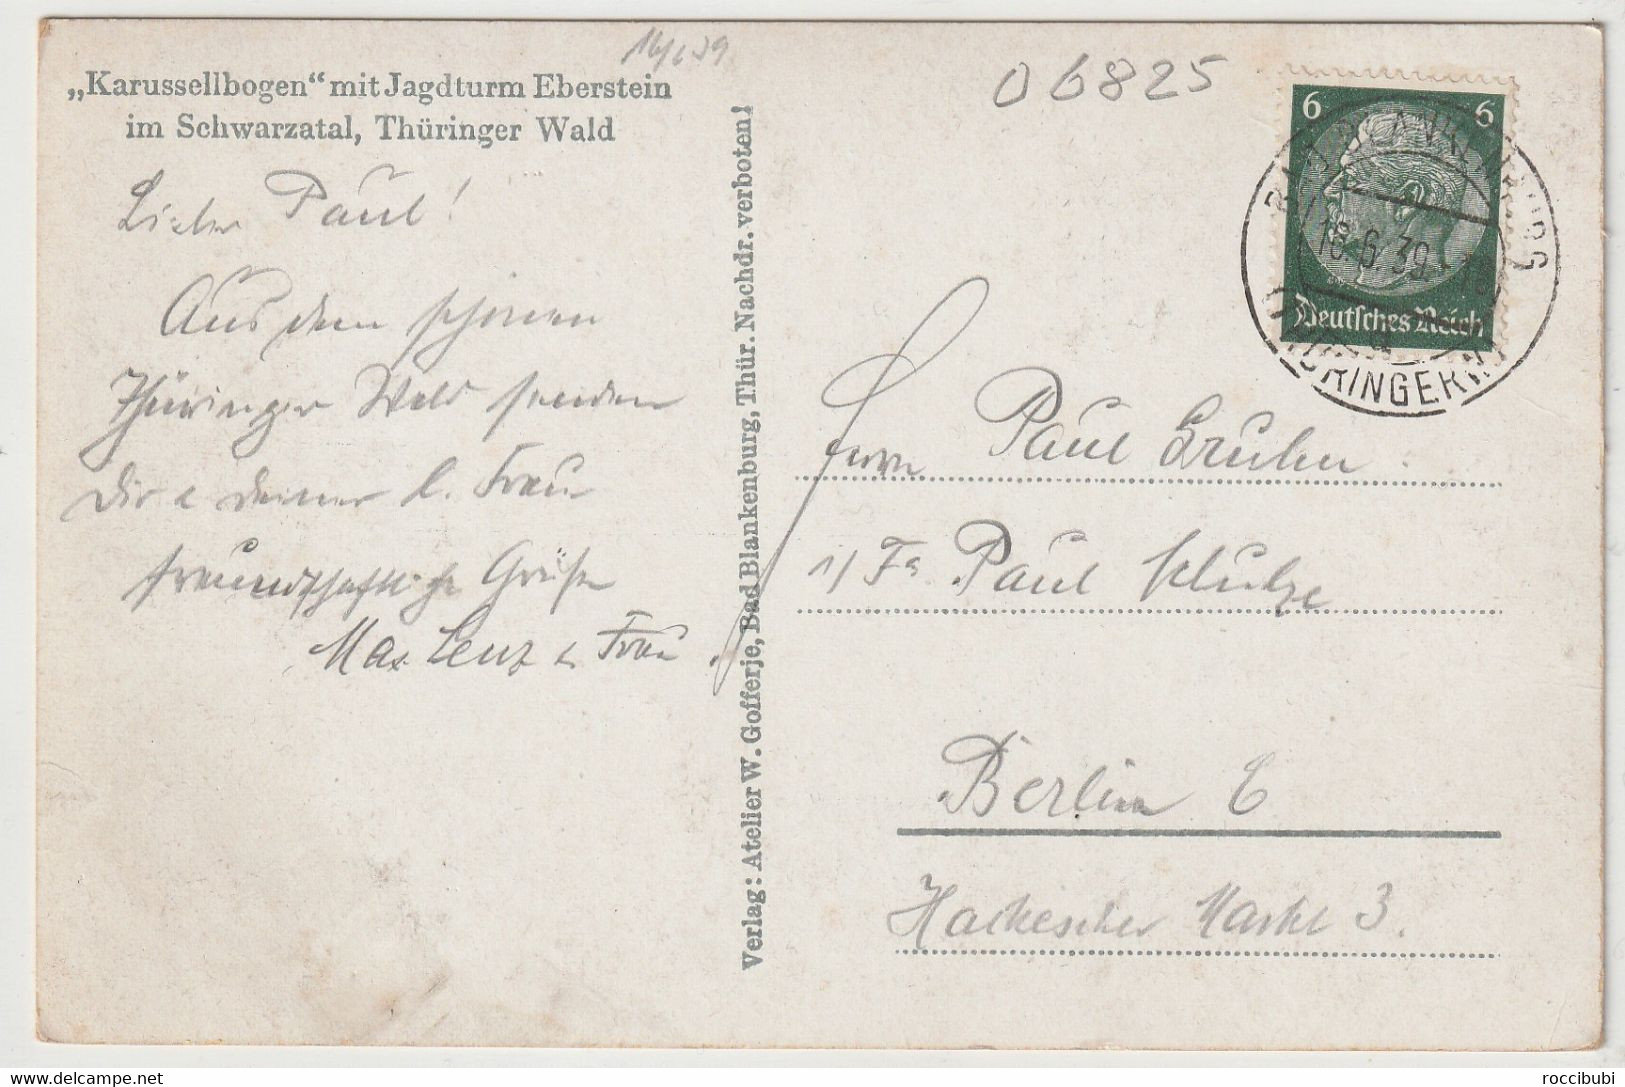 14/6 39
„Karussellbogen“ mit Jagdturm Eberstein
im Schwarzatal, Thüringer Wald
Lieber Paul!
Aus dem schönen
Thüringer Wald senden
Dir u deiner l. Frau
freundschaftliche Grüße
Max Lenz u Frau.
Verlag: Atelier W. Gofferje, Bad Blankenburg, Thür. Nachdr. verboten!
06825
6 6
Deutsches Reich
BAD BLANKENBURG
16.6.39
THÜRINGERW
Herrn Paul Gruhn.
i/Fa. Paul Schulze
Berlin C
Hackescher Markt 3.
roccibubi